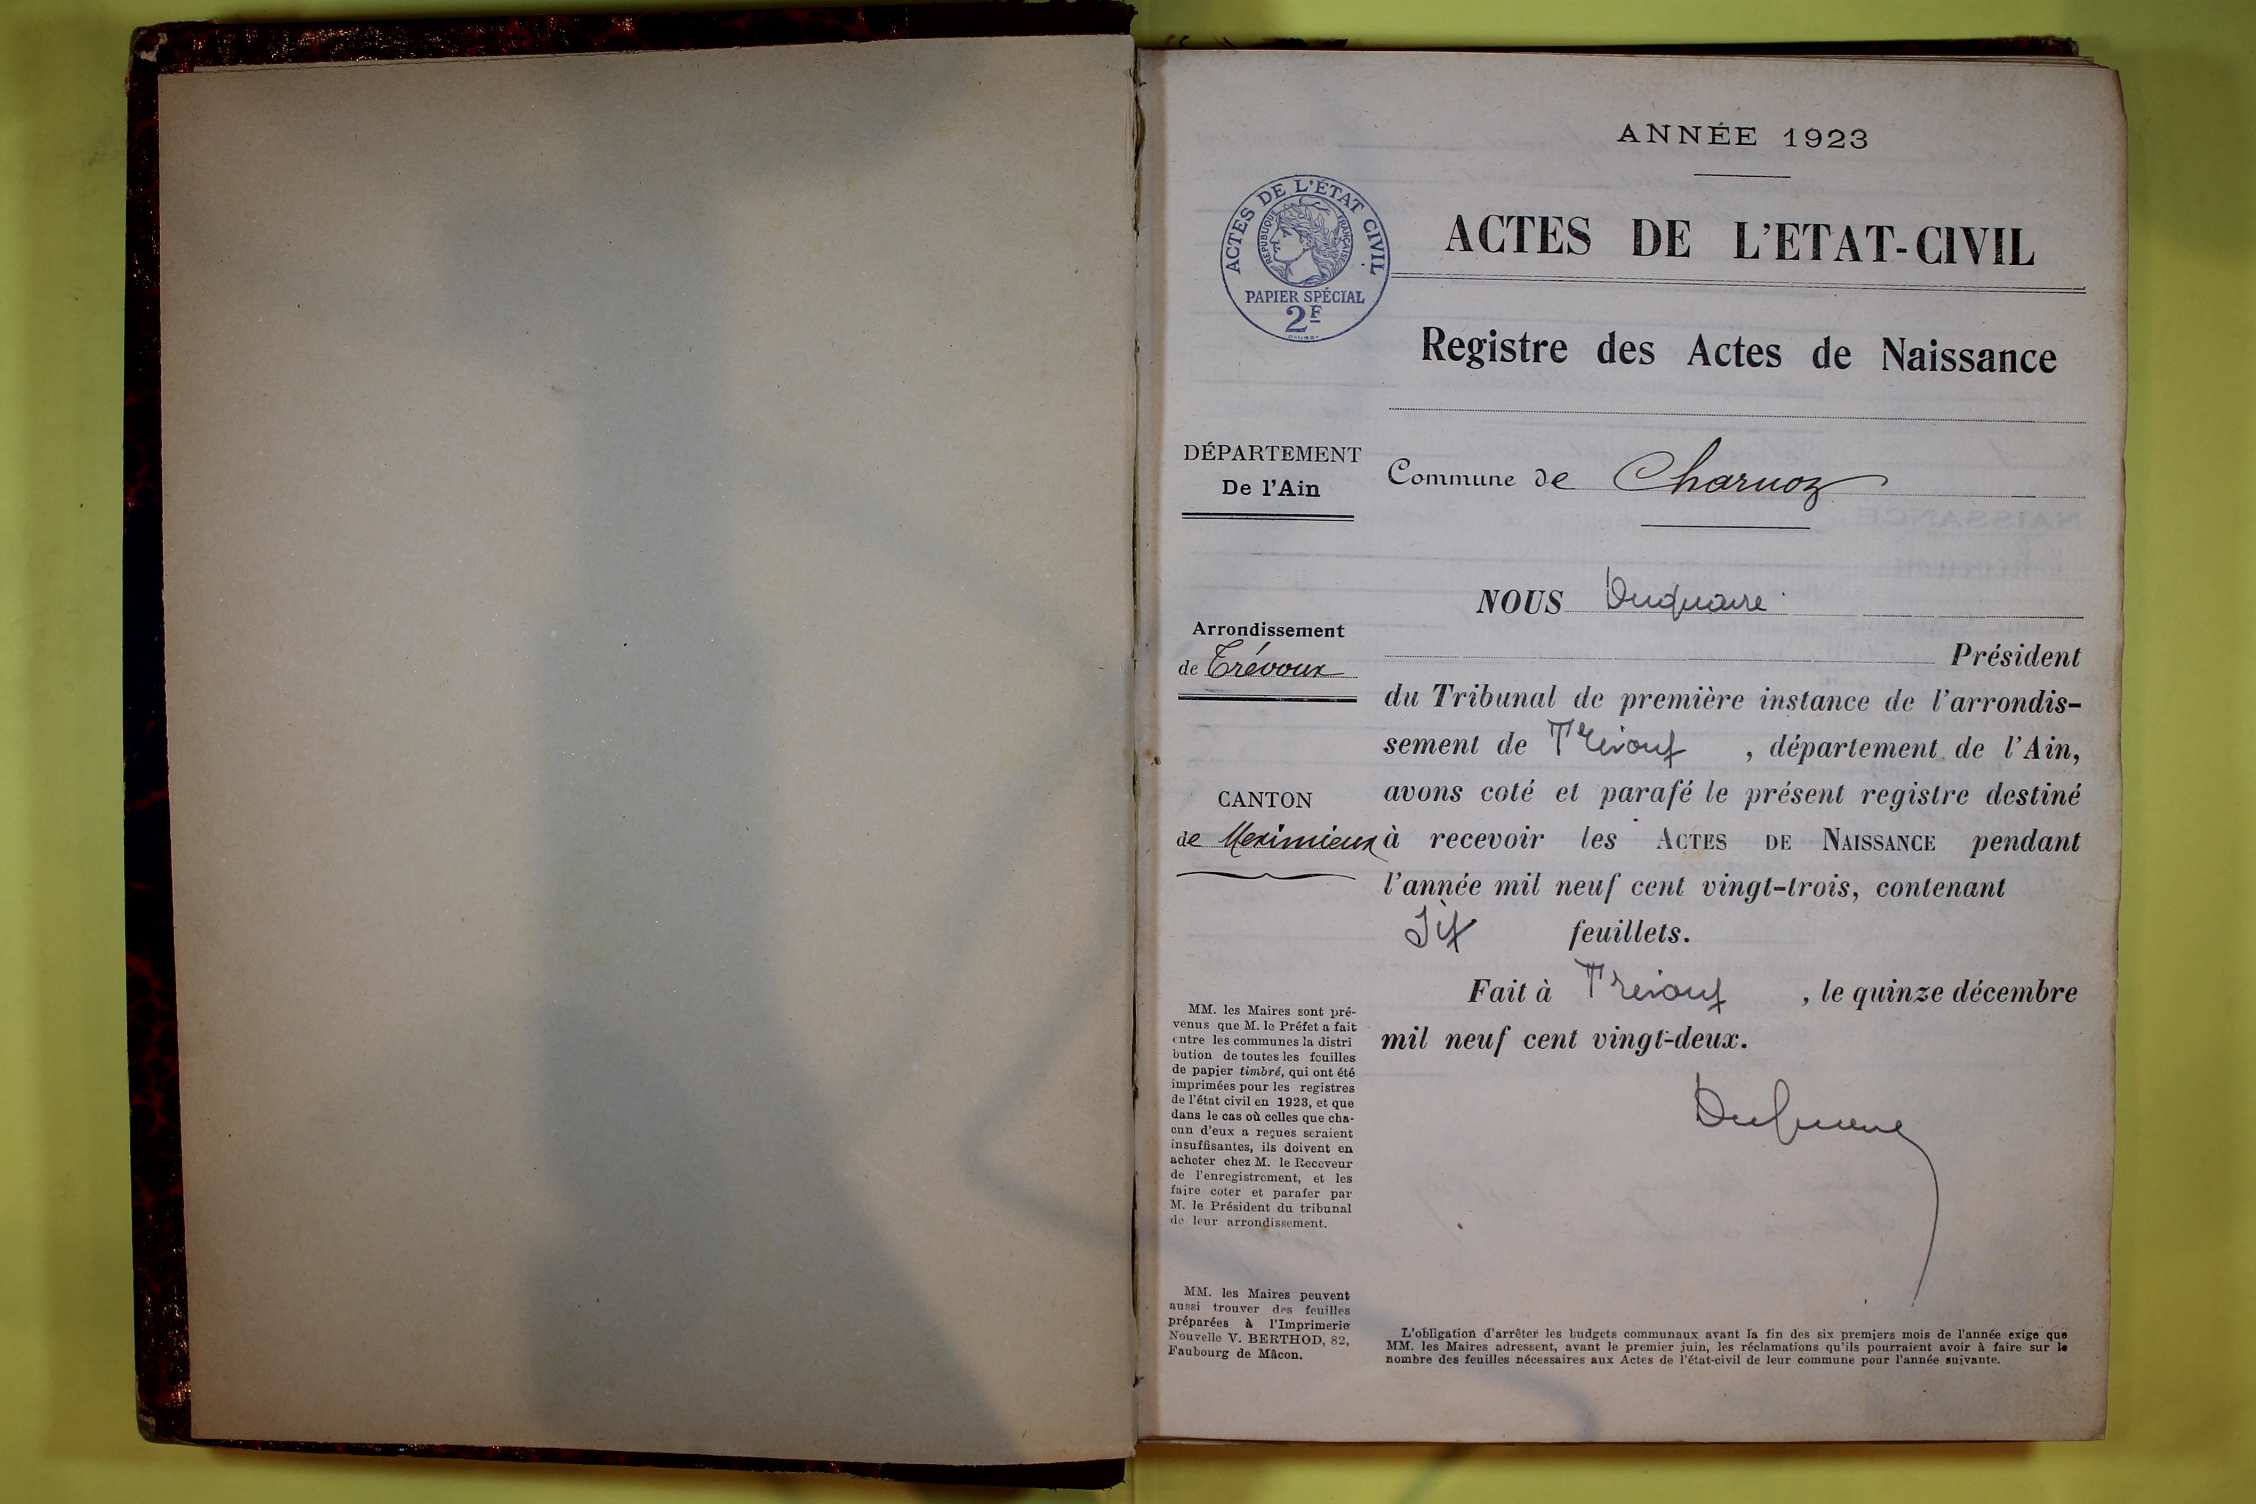 ANNÉE 1923
ACTES DE L'ÉTAT CIVIL
RÉPUBLIQUE FRANÇAISE
PAPIER SPÉCIAL
2F
ACTES DE L'ETAT-CIVIL
Registre des Actes de Naissance
DÉPARTEMENT
De l'Ain
Commune de Charnoz
Arrondissement
de Trévoux
CANTON
de Meximieux
NOUS Duquaire
Président
du Tribunal de première instance de l'arrondis-
sement de Trévoux, département de l'Ain,
avons coté et parafé le présent registre destiné
à recevoir les ACTES DE NAISSANCE pendant
l'année mil neuf cent vingt-trois, contenant
Six feuillets.
Fait à Trévoux, le quinze décembre
mil neuf cent vingt-deux.
MM. les Maires sont pré-
venus que M. le Préfet a fait
entre les communes la distri
bution de toutes les feuilles
de papier timbré, qui ont été
imprimées pour les registres
de l'état civil en 1923, et que
dans le cas où celles que cha-
cun d'eux a reçues seraient
insuffisantes, ils doivent en
acheter chez M. le Receveur
de l'enregistrement, et les
faire coter et parafer par
M. le Président du tribunal
de leur arrondissement.
MM. les Maires peuvent
aussi trouver des feuilles
préparées à l'Imprimerie
Nouvelle V. BERTHOD, 82,
Faubourg de Mâcon.
L'obligation d'arrêter les budgets communaux avant la fin des six premiers mois de l'année exige que
MM. les Maires adressent, avant le premier juin, les réclamations qu'ils pourraient avoir à faire sur le
nombre des feuilles nécessaires aux Actes de l'état-civil de leur commune pour l'année suivante.